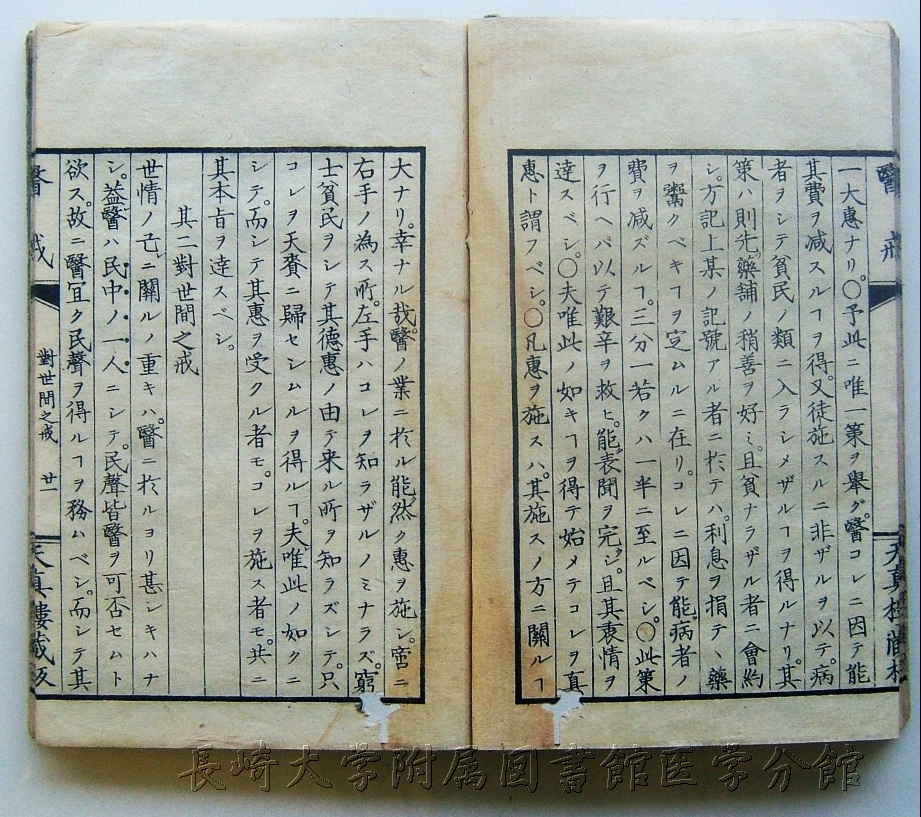 醫戒
一大惠ナリ。〇予此ニ唯一策ヲ擧グ。醫コレニ因テ能
其費ヲ减スルヿヲ得。又徒施スルニ非ザルヲ以テ。病
者ヲシテ貧民ノ類ニ入ラシメザルヿヲ得ルナリ。其
策ハ則先藥舖ノ稍善ヲ好ミ。且貧ナラザル者ニ會約
シ。方記上某ノ記號アル者ニ於テハ。利息ヲ捐テヽ藥
ヲ鬻クベキヿヲ定ムルニ在リ。コレニ因テ能病者ノ
費ヲ减ズルヿ。三分一若クハ一半ニ至ルベシ。〇此策
ヲ行ヘバ以テ艱辛ヲ救ヒ。能表聞ヲ完シ。且其衷情ヲ
達スベシ。〇夫唯此ノ如キヿヲ得テ始メテコレヲ真
惠ト謂フベシ。〇凡惠ヲ施スハ。其施スノ方ニ關ルヿ
大ナリ。幸ナル哉。醫ノ業ニ於ル能然ク惠ヲ施シ。啻ニ
右手ノ為ス所。左手ハコレヲ知ラザルノミナラズ。窮
士貧民ヲシテ其德惠ノ由テ来ル所ヲ知ラズシテ。只
コレヲ天賚ニ歸セシムルヲ得ルヿ。夫唯此ノ如クニ
シテ。而シテ其惠ヲ受クル者モ。コレヲ施ス者モ。共ニ
其本旨ヲ達スベシ。
其二對世間之戒
世情ノ亡ニ關ルノ重キハ。醫ニ於ルヨリ甚シキハナ
シ。益醫ハ民中ノ一人ニシテ。民聲皆醫ヲ可否セムト
欲ス。故ニ醫冝ク民聲ヲ得ルヿヲ務ムベシ。而シテ其
醫戒
對世間之戒
廿一
天真樓蔵
長崎大学附属図書館医学分館